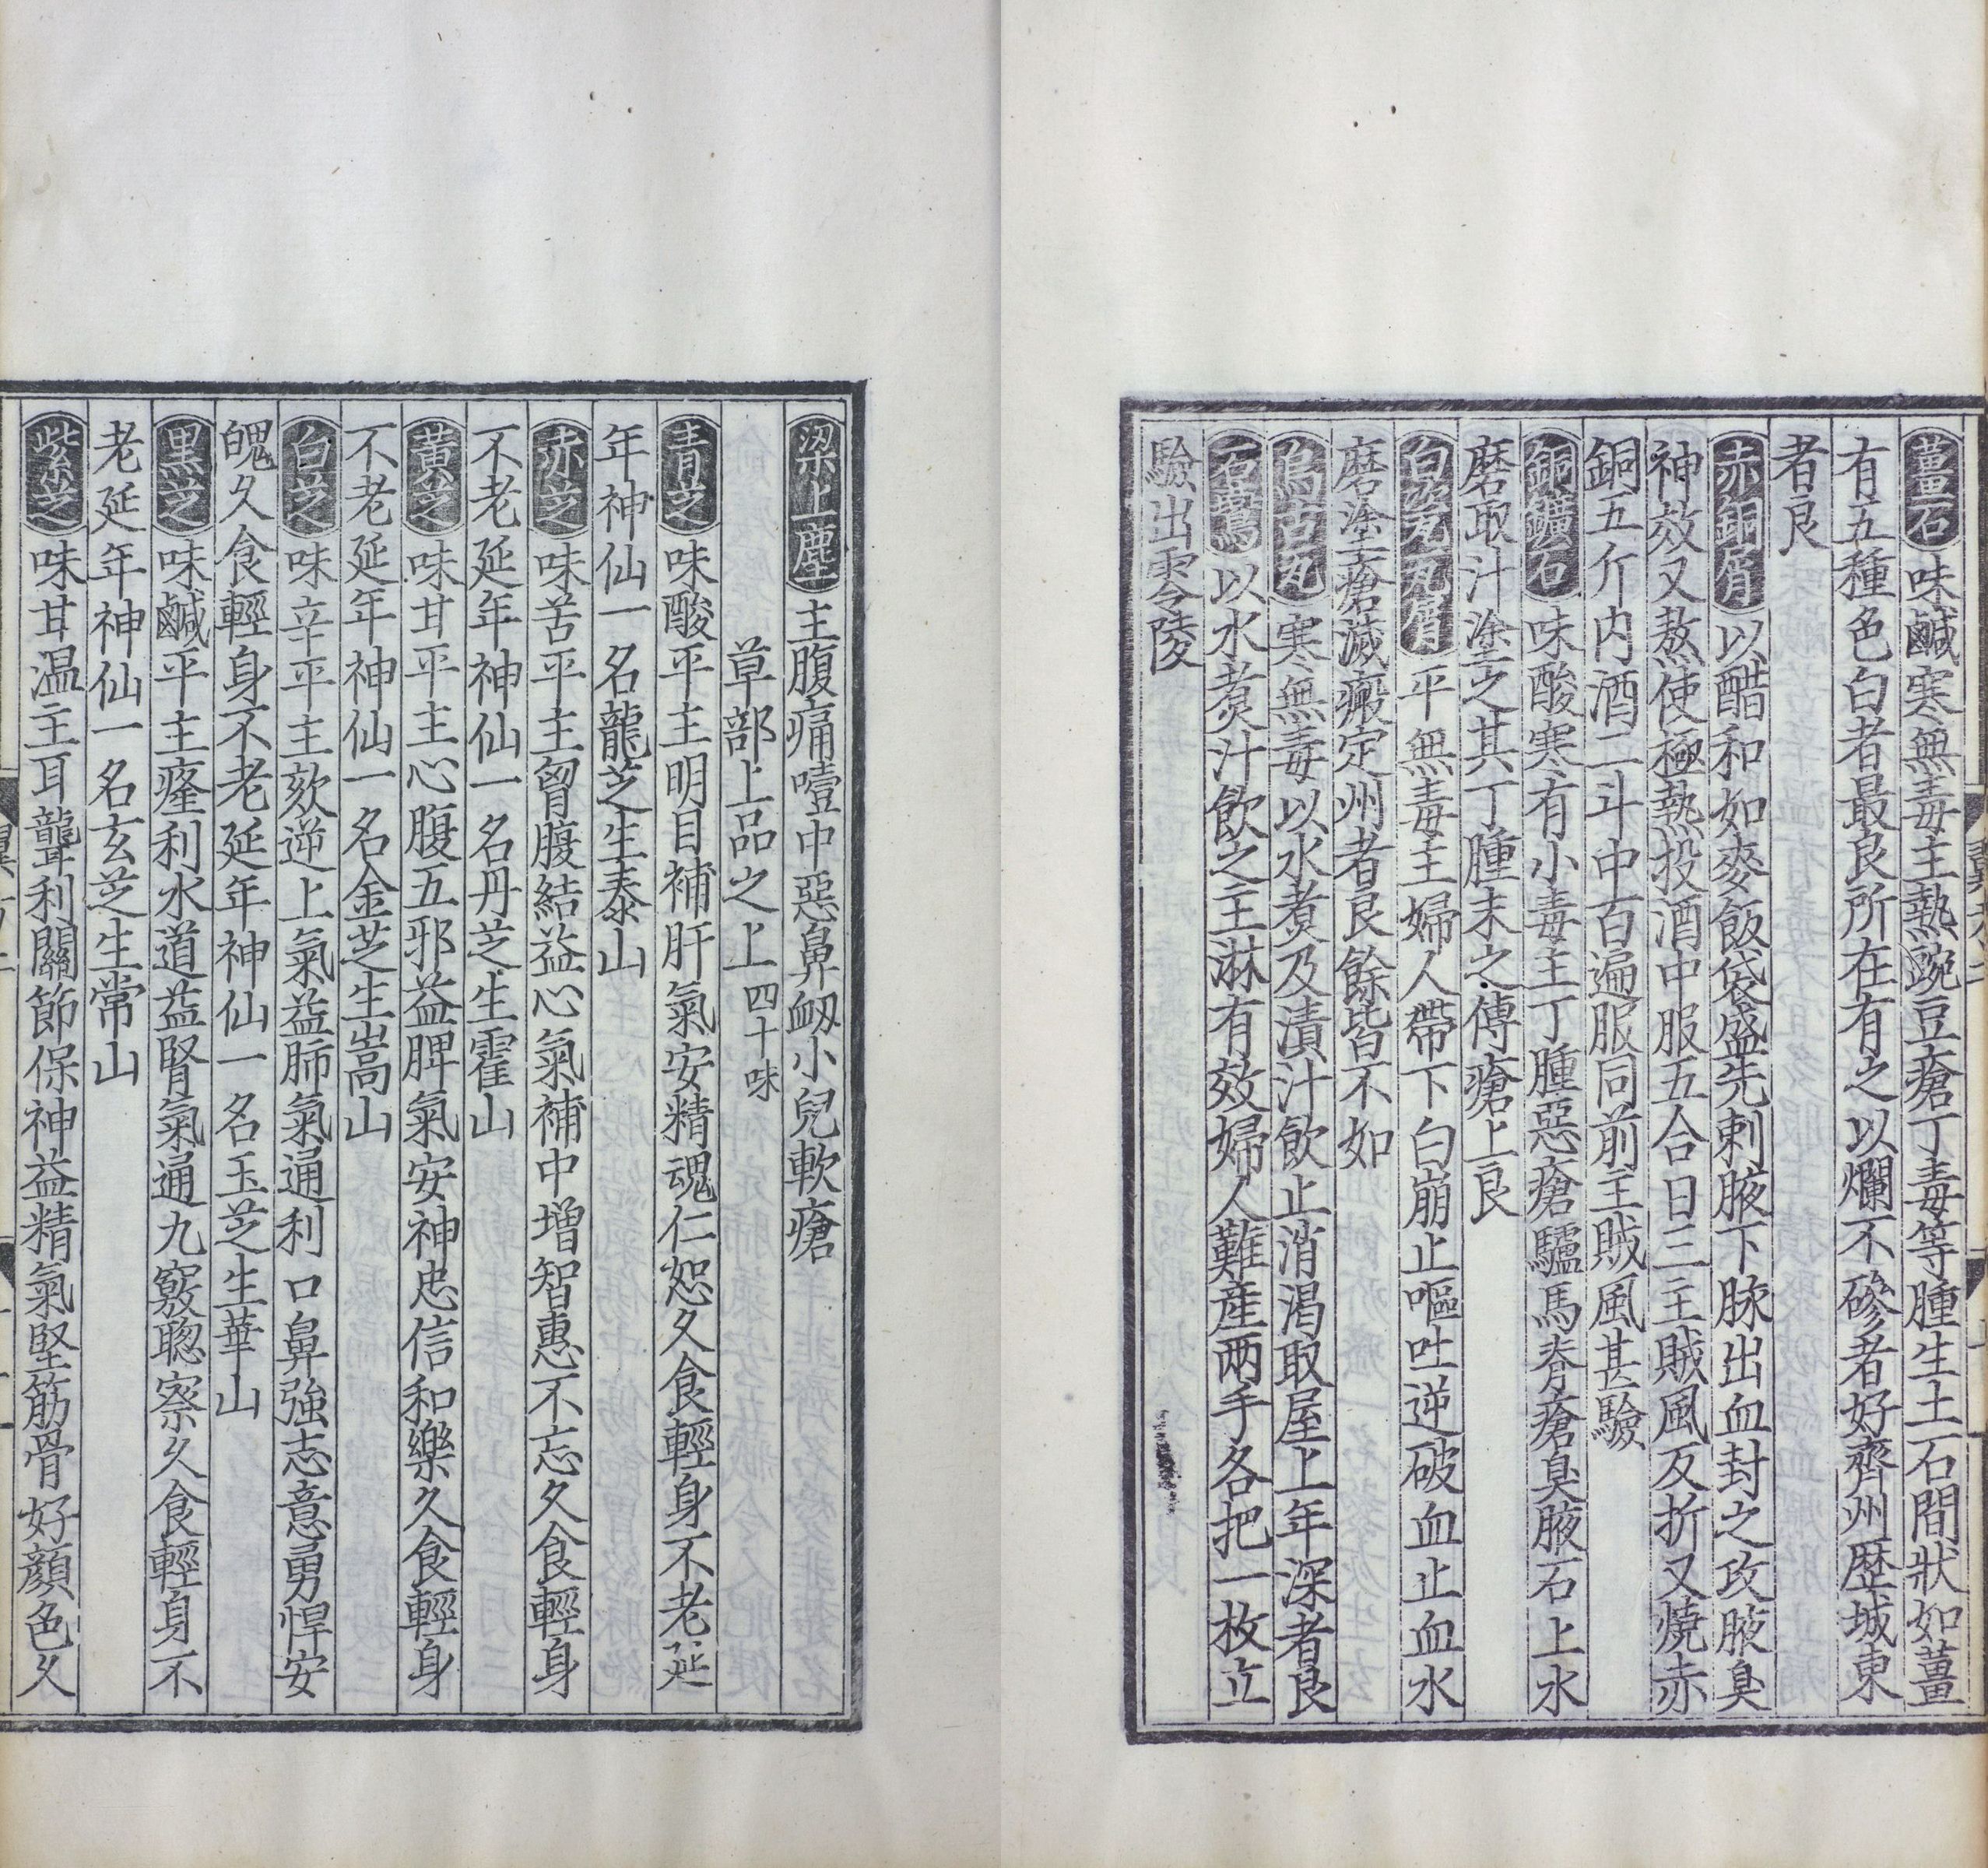 薑石味鹹寒無毒主熱豌豆瘡丁毒等腫生土石間狀如薑
有五種色白者最良所在有之以爛不磣者好齊州歷城東
者良
赤銅屑以醋和如麥飯袋盛先刺腋下脉出血封之攻腋臭
神效又熬使極熱投酒中服五合日三主賊風反折又燒赤
銅五斤内酒二斗中百遍服同前主賊風甚驗
銅鑛石味酸寒有小毒主丁腫惡瘡驢馬脊瘡臭腋石上水
磨取汁塗之其丁腫末之傅瘡上良
白瓷瓦屑平無毒主婦人帶下白崩止嘔吐逆破血止血水
磨塗瘡滅瘢定州者良餘皆不如
烏古瓦寒無毒以水煑及漬汁飲止消渴取屋上年深者良
石鷰以水煑汁飲之主淋有效婦人難産兩手各把一枚立
驗出零陵
梁上塵主腹痛噎中惡鼻衂小兒軟瘡
草部上品之上四十味
青芝味酸平主明目補肝氣安精魂仁恕久食輕身不老延
年神仙一名龍芝生泰山
赤芝味苦平主胷腹結益心氣補中增智惠不忘久食輕身
不老延年神仙一名丹芝生霍山
黃芝味甘平主心腹五邪益脾氣安神忠信和樂久食輕身
不老延年神仙一名金芝生嵩山
白芝味辛平主欬逆上氣益肺氣通利口鼻強志意勇悍安
魄久食輕身不老延年神仙一名玉芝生華山
黑芝味鹹平主癃利水道益腎氣通九竅聦察久食輕身不
老延年神仙一名玄芝生常山
紫芝味甘温主耳聾利關節保神益精氣堅筋骨好顔色久